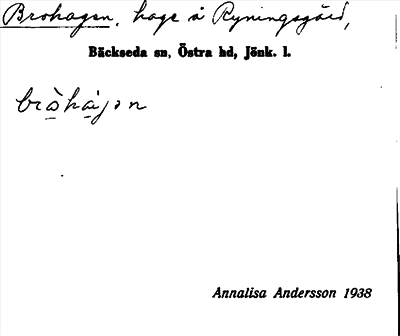 Brohagen, hage å Ryningsgård,
Bäckseda sn, Östra hd, Jönk. l.
bròhájən
Annalisa Andersson 1938